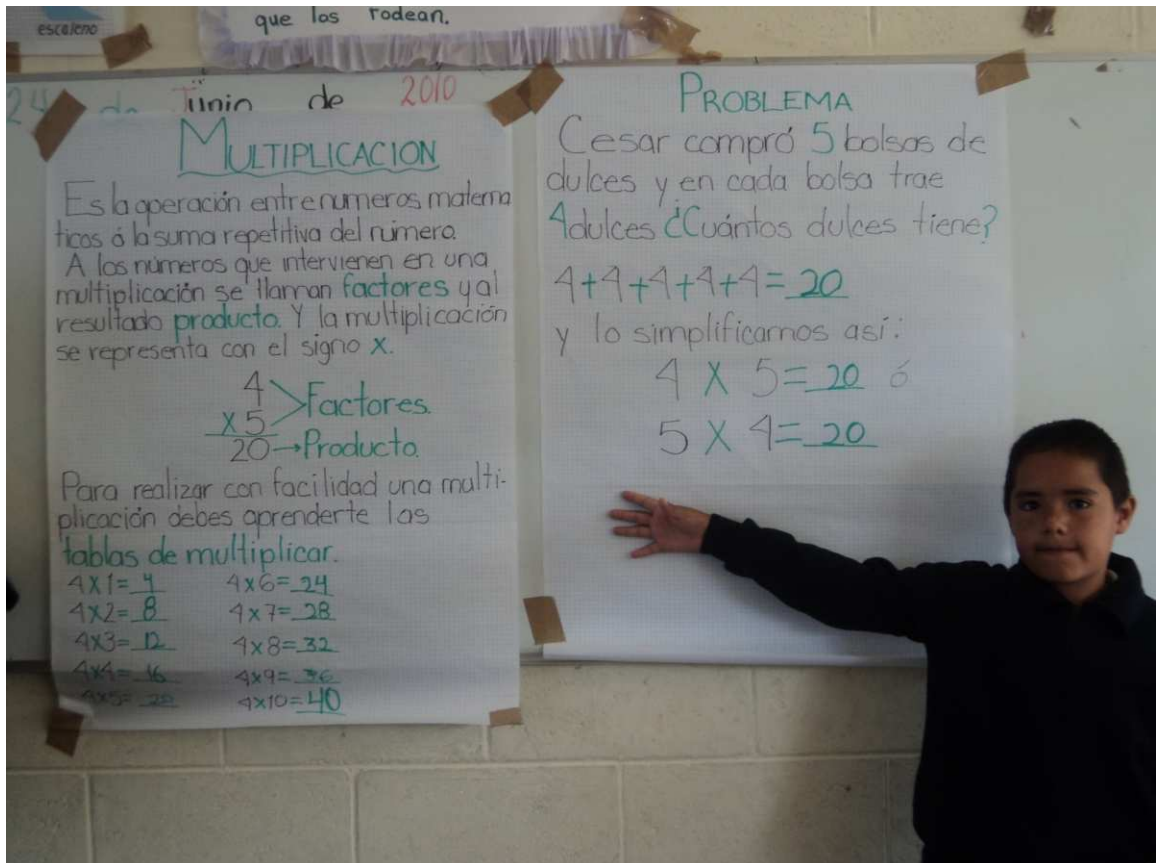 escaleno
que los rodean.
24 de Junio de 2010
MULTIPLICACION
Es la operación entre numeros matema
ticos ó la suma repetitiva del número.
A los números que intervienen en una
multiplicación se llaman factores y al
resultado producto. Y la multiplicación
se representa con el signo x.
4
x 5 > Factores.
20 → Producto.
Para realizar con facilidad una multi-
plicación debes aprenderte las
tablas de multiplicar.
4x1= 4 4x6= 24
4x2= 8 4x7= 28
4x3= 12 4x8= 32
4x4= 16 4x9= 36
4x5= 20 4x10= 40
PROBLEMA
Cesar compró 5 bolsas de
dulces y en cada bolsa trae
4 dulces ¿Cuántos dulces tiene?
4+4+4+4+4= 20
y lo simplificamos así:
4 X 5= 20 ó
5 X 4= 20